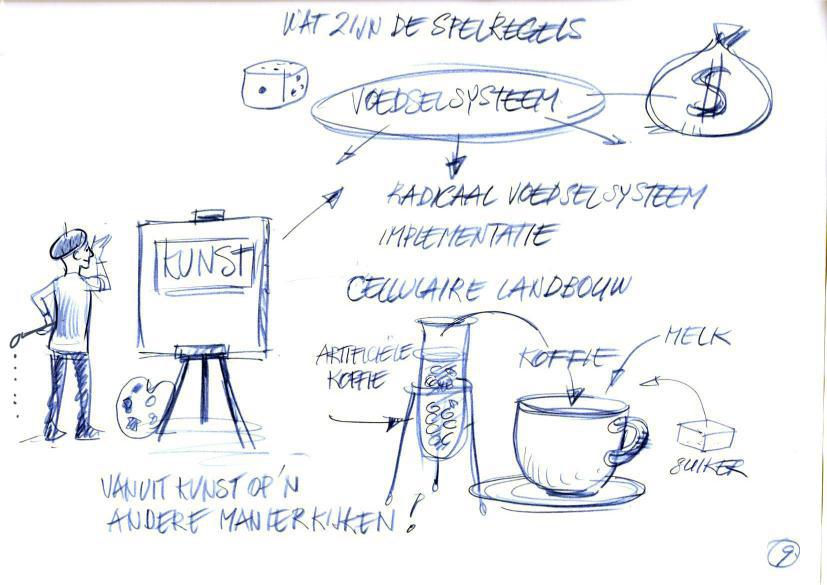 WAT ZIJN DE SPELREGELS
VOEDSELSYSTEEM
$
RADICAAL VOEDSELSYSTEEM
IMPLEMENTATIE
CELLULAIRE LANDBOUW
KUNST
ARTIFICIËLE
KOFFIE
KOFFIE
MELK
SUIKER
VANUIT KUNST OP 'N
ANDERE MANIER KIJKEN!
9